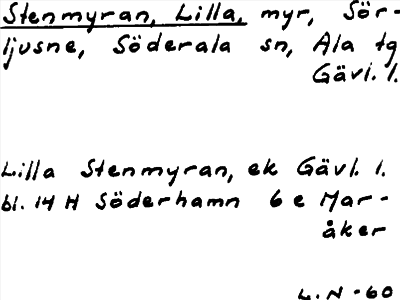 Stenmyran, Lilla, myr, Sör-
ljusne, Söderala sn, Ala tg
Gävl. l.
Lilla Stenmyran, ek Gävl. l.
bl. 14 H Söderhamn 6 e Mar-
åker
L. N -60